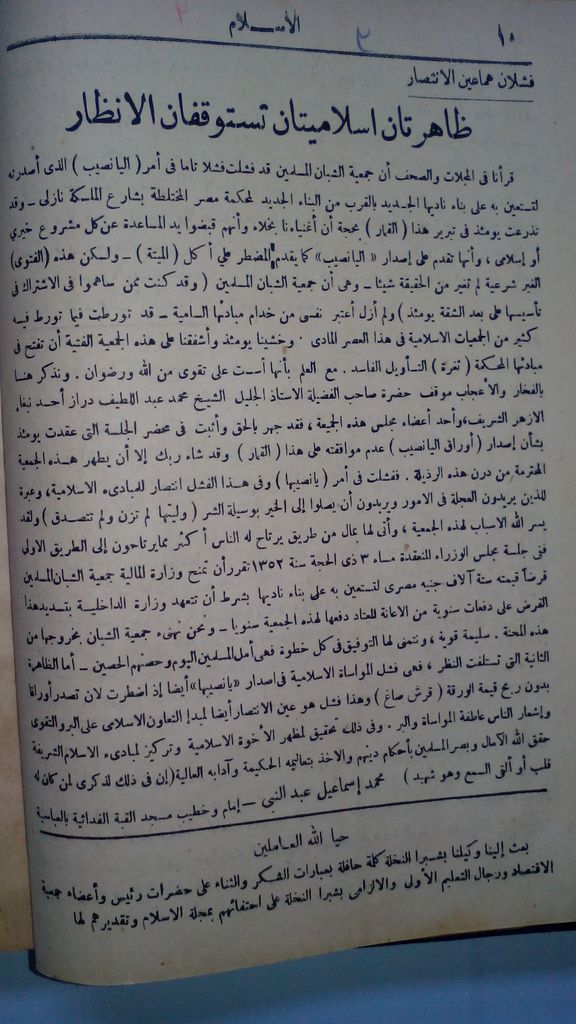 ١٠
الاسلام
فشلان هما عين الانتصار
ظاهرتان اسلاميتان تستوقفان الانظار
قرأنا فى المجلات والصحف أن جمعية الشبان المسلمين قد فشلت فشلا تاما فى أمر ( اليانصيب ) الذى أصدرته
لتستعين به على بناء ناديها الجديد بالقرب من البناء الجديد لمحكمة مصر المختلطة بشارع الملكة نازلى ــ وقد
تذرعت يومئذ فى تبرير هذا ( القمار ) بحجة أن أغنياءنا بخلاء وأنهم قبضوا يد المساعدة عن كل مشروع خيرى
أو إسلامى ، وأنها تقدم على إصدار « اليانصيب » كما يقدم المضطر على أكل ( الميتة ) ــ ولكن هذه ( الفتوى )
الغير شرعية لم تغير من الحقيقة شيئا ــ وهى أن جمعية الشبان المسلمين ( وقد كنت ممن ساهموا فى الاشتراك فى
تأسيسها على بعد الشقة يومئذ ) ولم أزل أعتبر نفسى من خدام مبادئها السامية ــ قد تورطت فيما تورط فيه
كثير من الجمعيات الاسلامية فى هذا العصر المادى . وخشينا يومئذ وأشفقنا على هذه الجمعية الفتية أن تفتح فى
مبادئها المحكمة ( ثغرة ) التأويل الفاسد . مع العلم بأنها أسست على تقوى من الله ورضوان . ونذكر هنا
بالفخار والاعجاب موقف حضرة صاحب الفضيلة الاستاذ الجليل الشيخ محمد عبد اللطيف دراز أحد نبغاء
الازهر الشريف ، وأحد أعضاء مجلس هذه الجمعية ، فقد جهر بالحق وأثبت فى محضر الجلسة التى عقدت يومئذ
بشأن إصدار ( أوراق اليانصيب ) عدم موافقته على هذا ( القمار ) وقد شاء ربك إلا أن يطهر هذه الجمعية
المحترمة من درن هذه الرذيلة . ففشلت فى أمر ( يانصيبها ) وفى هذا الفشل انتصار للمبادىء الاسلامية ، وعبرة
للذين يريدون العجلة فى الامور ويريدون أن يصلوا إلى الخير بوسيلة الشر ( وليتها لم تزن ولم تتصدق ) ولقد
يسر الله الاسباب لهذه الجمعية ، وأتى لها بمال من طريق يرتاح له الناس أكثر مما يرتاحون إلى الطريق الاولى
ففى جلسة مجلس الوزراء المنعقدة مساء ٣ ذى الحجة سنة ١٣٥٢ تقرر أن تمنح وزارة المالية جمعية الشبان المسلمين
قرضاً قيمته ستة آلاف جنيه مصرى لتستعين به على بناء ناديها بشرط أن تتعهد وزارة الداخلية بتسديد هذا
القرض على دفعات سنوية من الاعانة المعتاد دفعها لهذه الجمعية سنويا ــ ونحن نهنىء جمعية الشبان بخروجها من
هذه المحنة . سليمة قوية ، ونتمنى لها التوفيق فى كل خطوة فهى أمل المسلمين اليوم وحصنهم الحصين ــ أما الظاهرة
الثانية التى تستلفت النظر ، فهى فشل المواساة الاسلامية فى اصدار « يانصيبها » أيضا إذ اضطرت لان تصدر أوراقا
بدون ربح قيمة الورقة ( قرش صاغ ) وهذا فشل هو عين الانتصار أيضا لمبدإ التعاون الاسلامى على البر والتقوى
وإشعار الناس عاطفة المواساة والبر . وفى ذلك تحقيق لمظهر الأخوة الاسلامية وتركيز لمبادىء الاسلام الشريفة
حقق الله الآمال وبصر المسلمين بأحكام دينهم والاخذ بتعاليمه الحكيمة وآدابه العالية ( إن فى ذلك لذكرى لمن كان له
قلب أو ألقى السمع وهو شهيد ) محمد إسماعيل عبد النبى ــ إمام وخطيب مسجد القبة الفدائية بالعباسية
حيا الله العاملين
بعث إلينا وكيلنا بشبرا النخلة كلمة حافلة بعبارات الشكر والثناء على حضرات رئيس وأعضاء جمعية
الاقتصاد ورجال التعليم الأولى والالزامى بشبرا النخلة على احتفائهم بمجلة الاسلام وتقديرهم لها